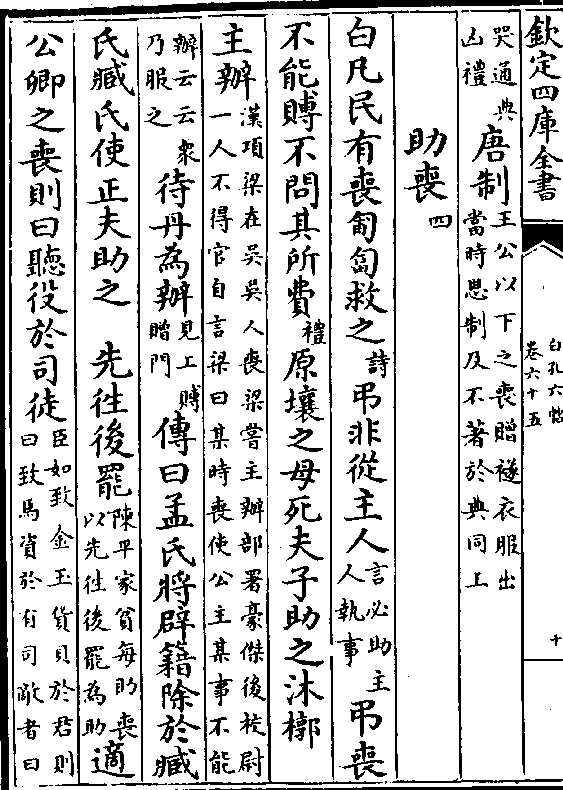 欽定四庫全書
白孔六帖
卷六十五
十
哭通典
凶禮
唐制
王公以下之喪贈襚衣服出
當時恩制及不著於典同上
助喪四
白凡民有喪匍匐救之
詩
弔非從主人
言必助主
人執事
弔喪
不能賻不問其所費
禮
原壤之母死夫子助之沐槨
主辦
漢項梁在吳吳人喪梁嘗主辦部署豪傑後校尉
一人不得官自言梁曰某時喪使公主某事不能
辦云云衆
乃服之
待丹為辦
見上賻
贈門
傳曰孟氏將辟籍除於臧
氏臧氏使正夫助之
先徃後罷
陳平家貧每助喪
以先徃後罷為助
適
公卿之喪則曰聽役於司徒
臣如致金玉貨貝於君則
曰致馬資於有司敵者曰